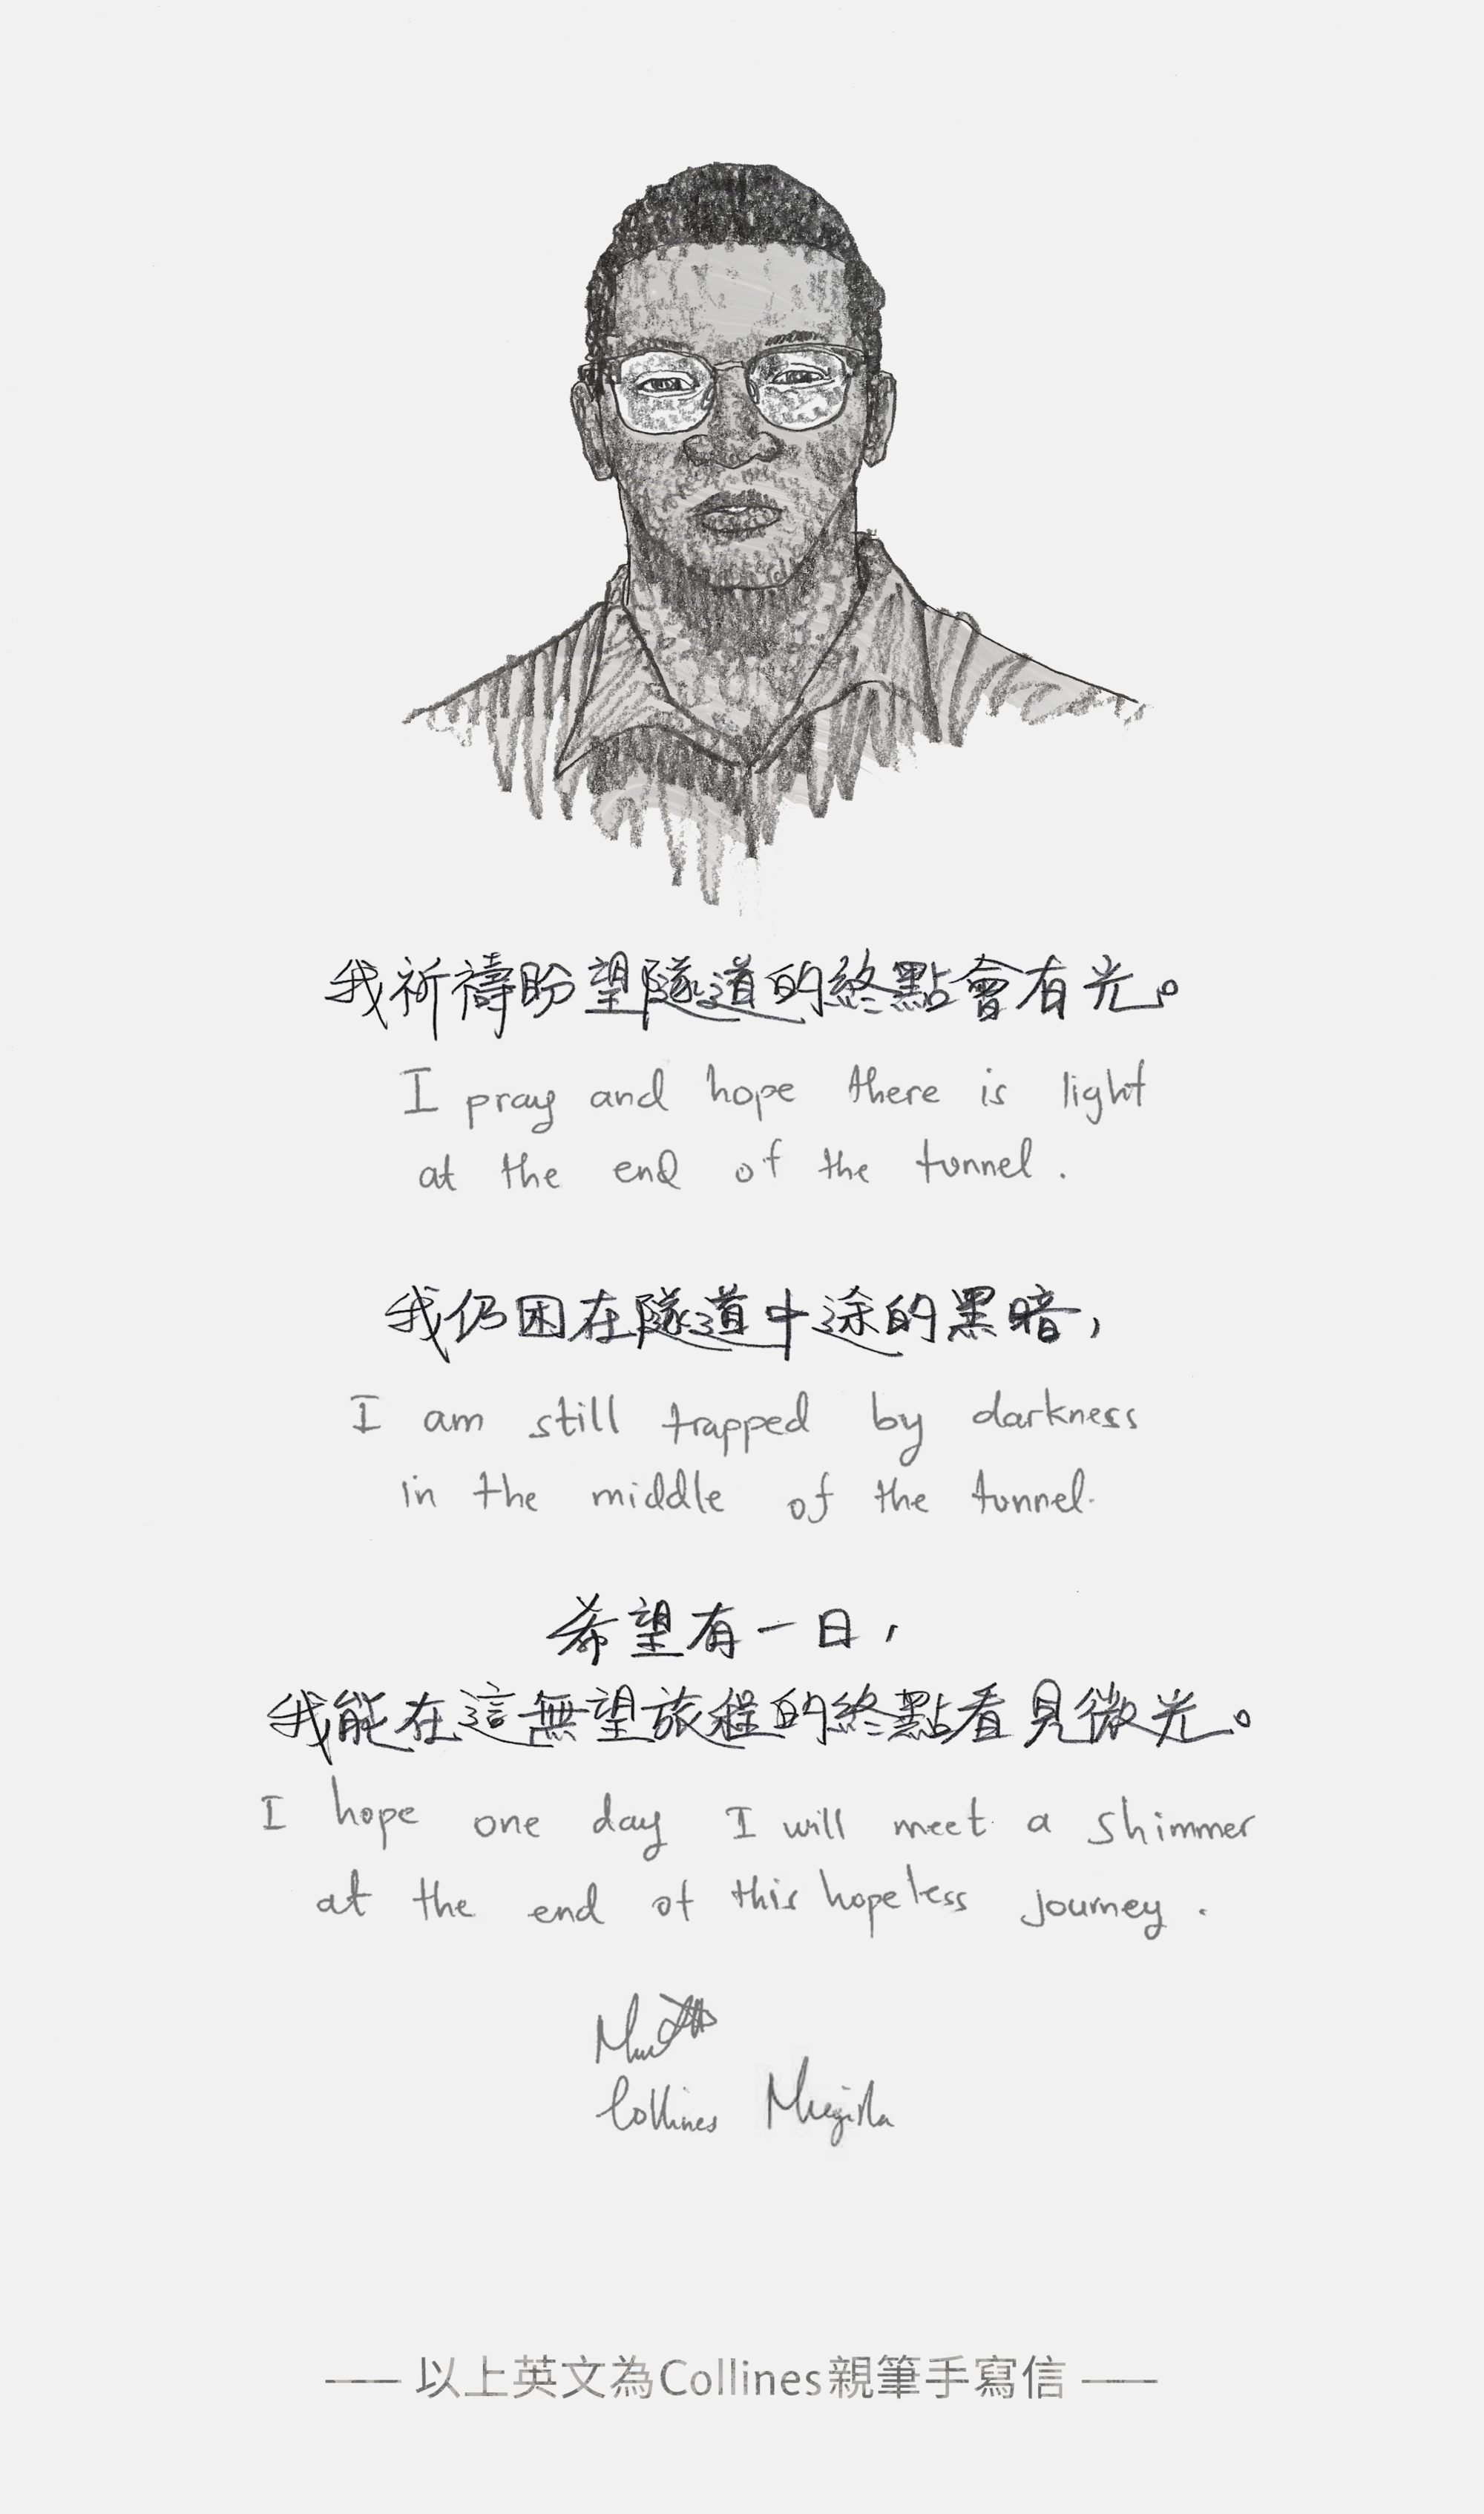 我祈禱盼望隧道的終點會有光。
I pray and hope there is light
at the end of the tunnel.
我仍困在隧道中途的黑暗,
I am still trapped by darkness
in the middle of the tunnel.
希望有一日,
我能在這無望旅程的終點看見微光。
I hope one day I will meet a shimmer
at the end of this hopeless journey.
Collines
—— 以上英文為Collines親筆手寫信 ——